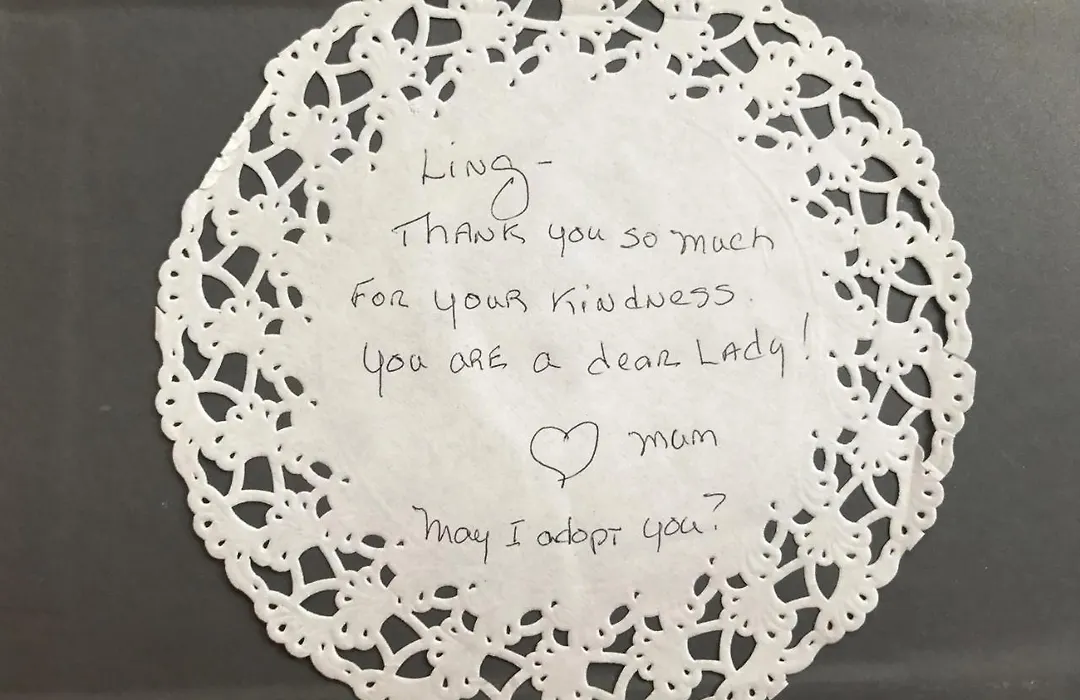 Ling -
Thank you so much
for your kindness.
You are a dear Lady!
♡ mum
May I adopt you?